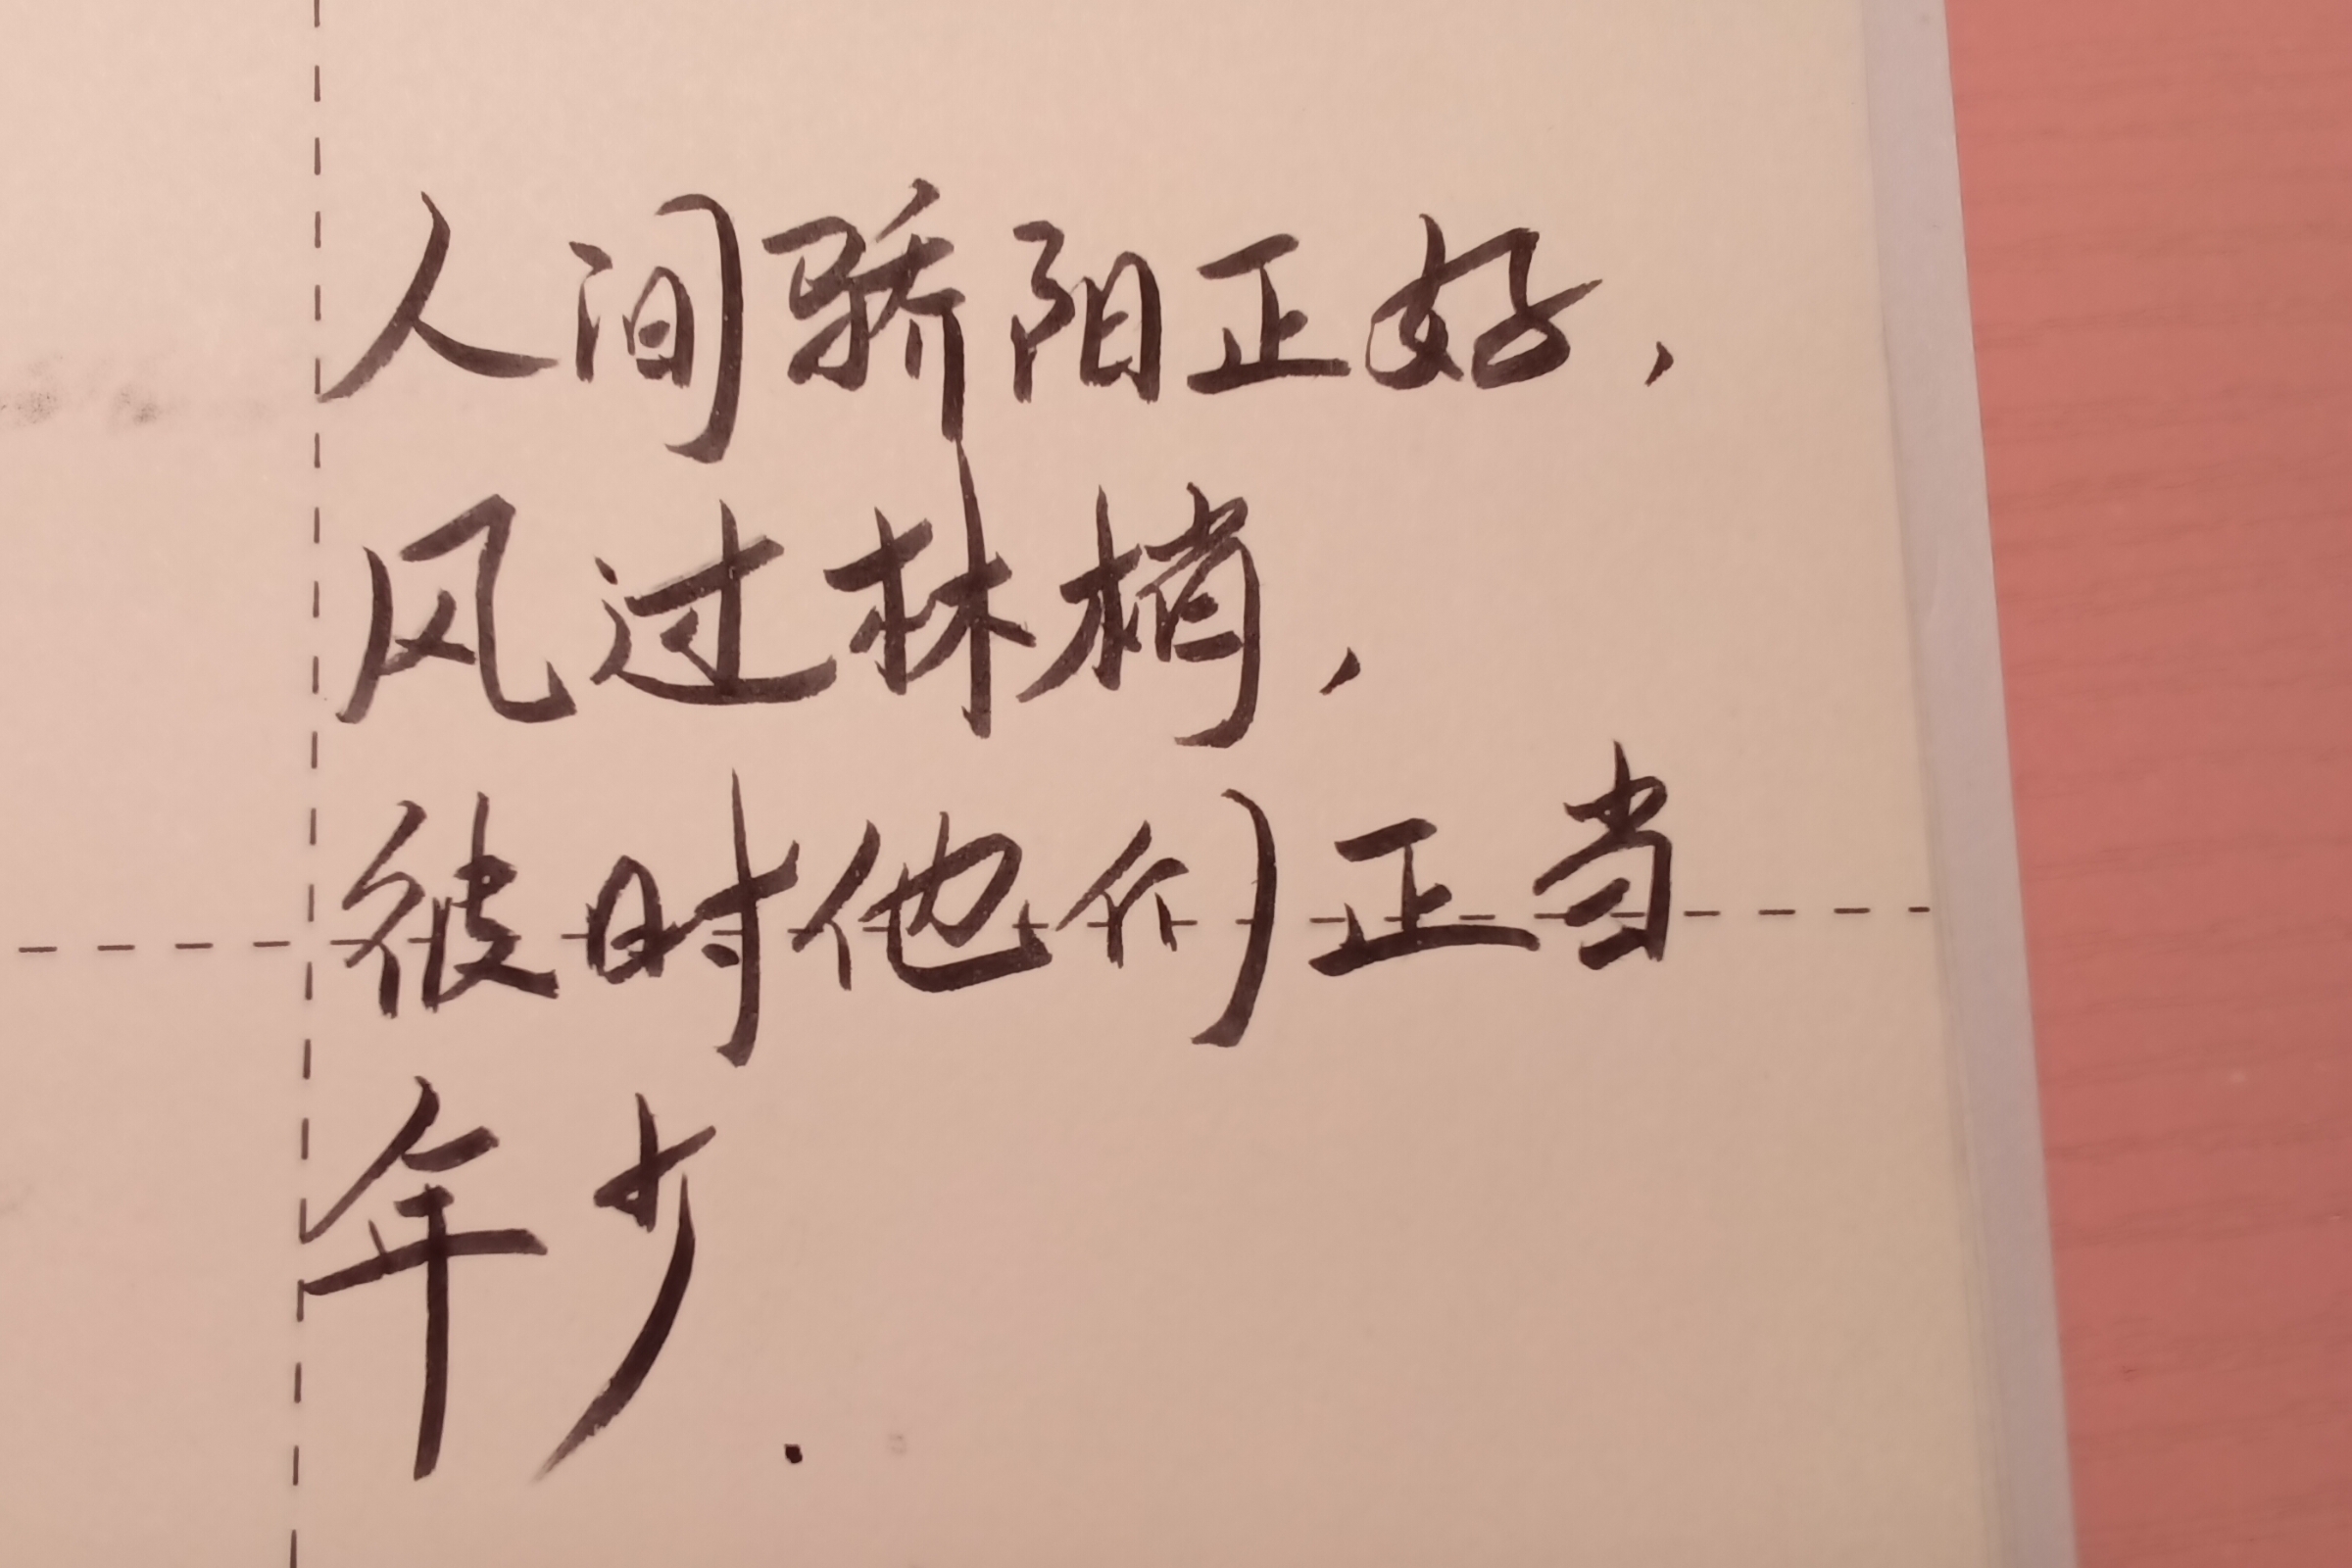 人间骄阳正好,
风过林梢,
彼时他们正当
年少.